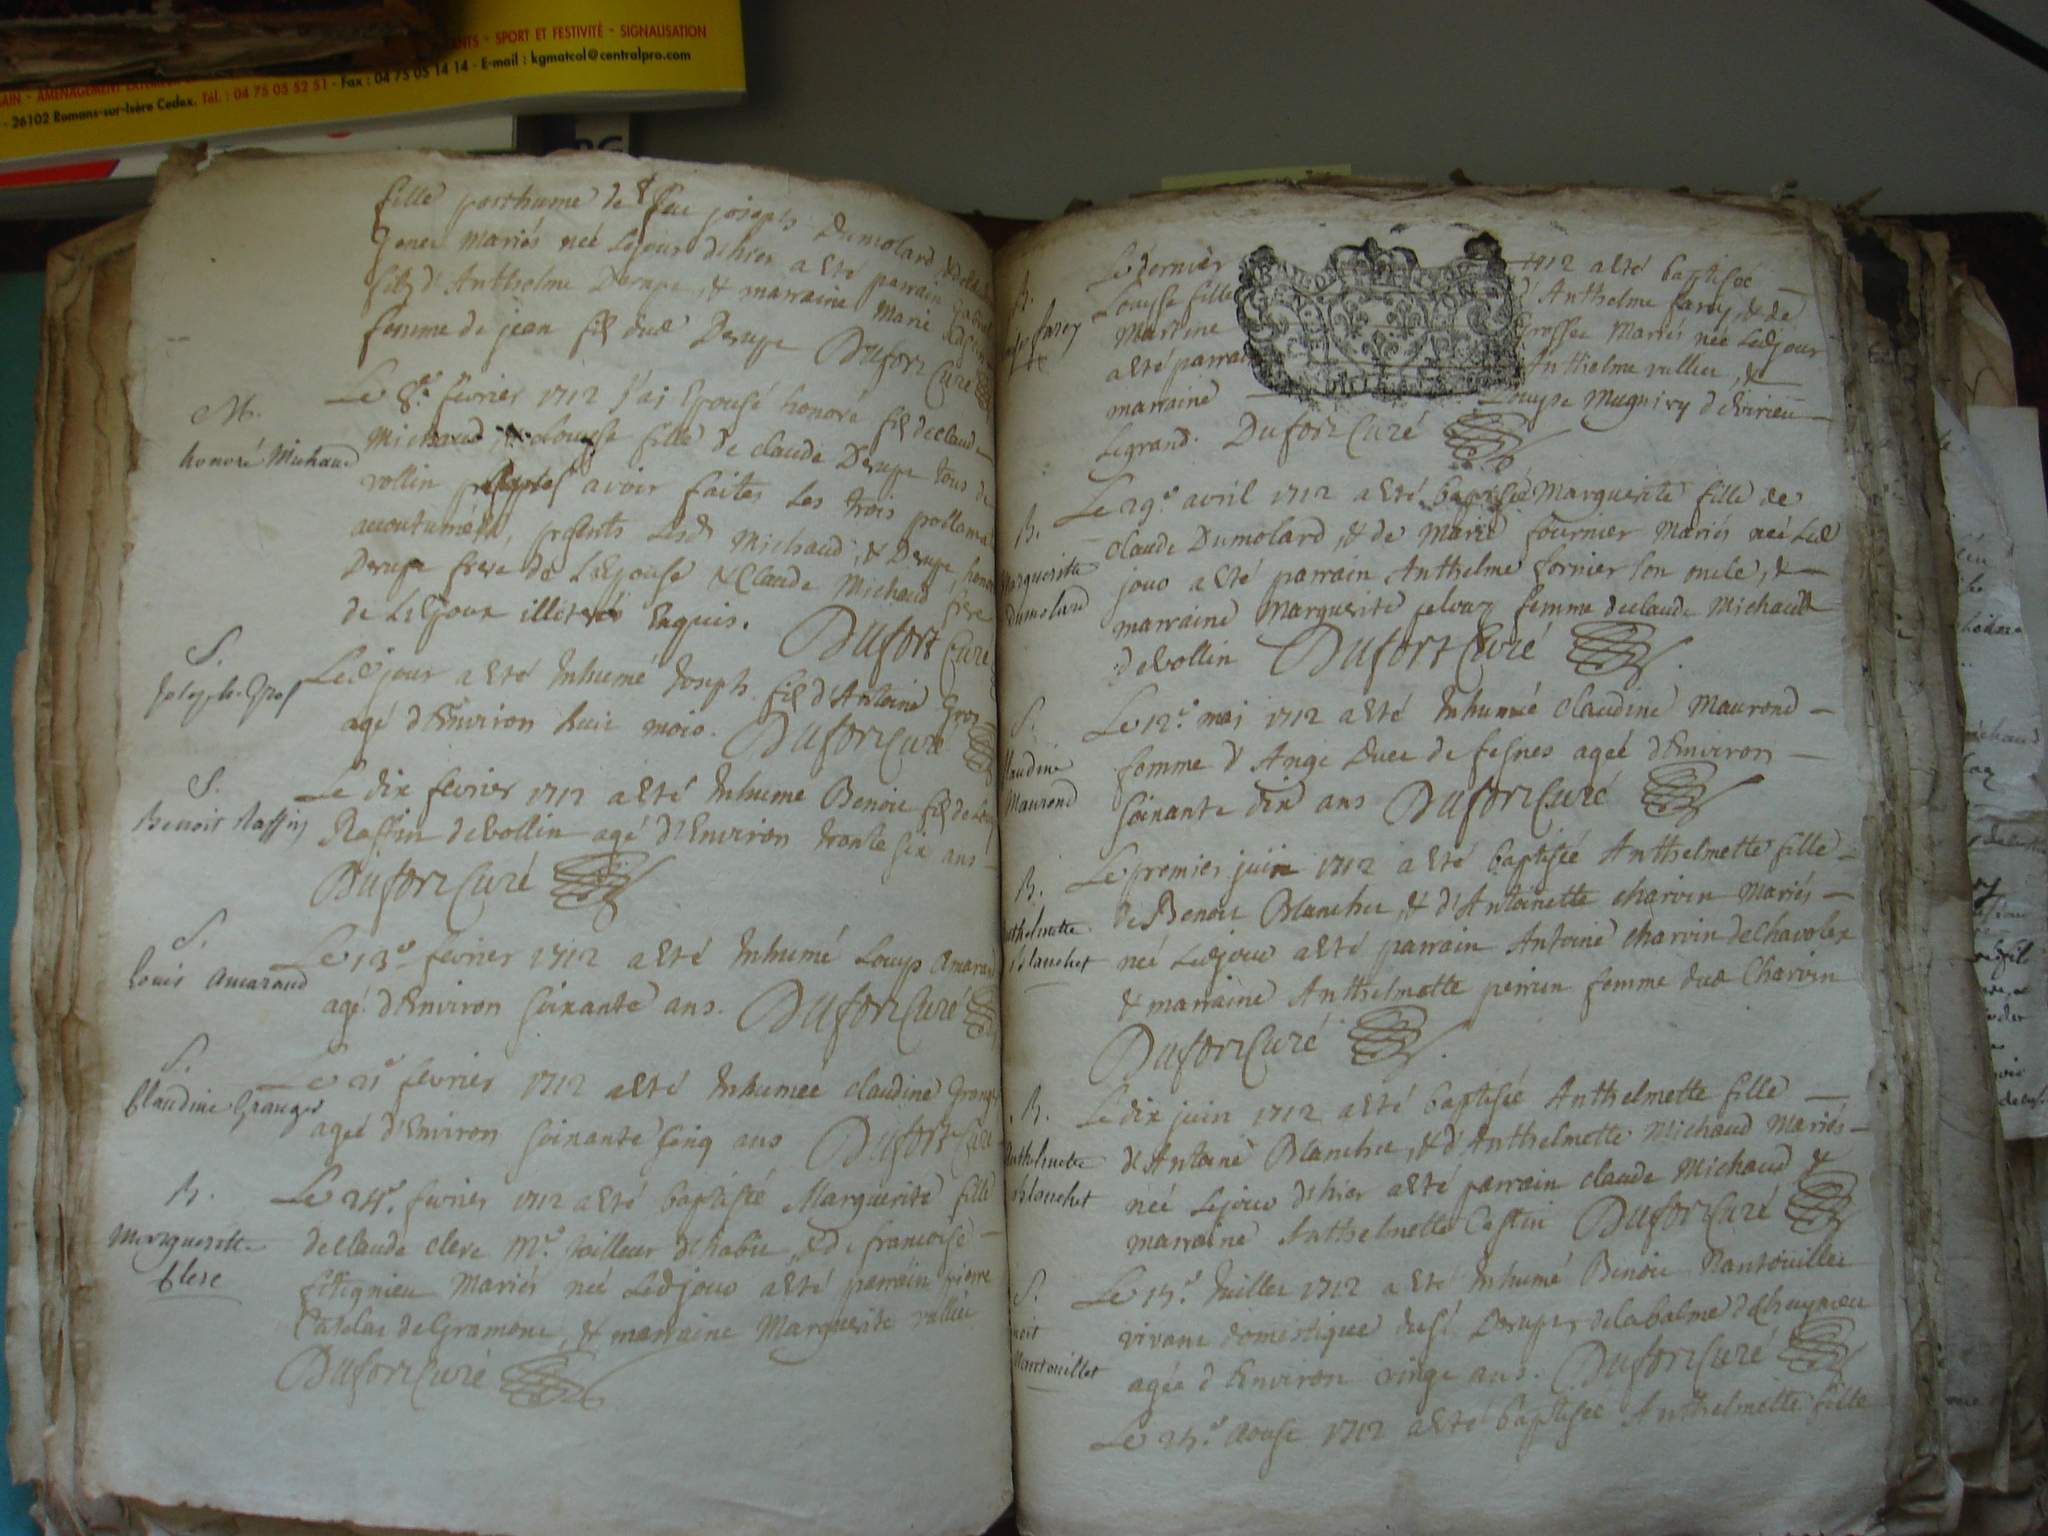 - SPORT ET FESTIVITÉ - SIGNALISATION
- AMÉNAGEMENT
- 26102 Romans-sur-Isère Cedex. Tél. : 04 75 05 52 51 - Fax : 04 75 05 14 14 - E-mail : kgmatcol@centralpro.com
fille posthume de feu joseph Dumolard
mariés née Lejour dhier a Esté parrain
fils d'Anthelme Derupe & marraine Marie
femme de jean fils dud Derupe Dufort Curé
M.
honoré Michaud
Le 8e fevrier 1712 j'ai Epousé honoré fils declaude
Michaud & Louyse fille de claude Derupe tous de
vollin avoir faites les trois proclama
accoutumées, présents Lesds Michaud & Derupe, honoré
Derupe frere de L'Epouse & Claude Michaud frere
de L'Epoux illiterés Enquis. Dufort Curé
S.
Joseph Gros
Ledjour a Esté Inhumé Joseph fils d'Antoine Gros
agé d'Environ huit mois. Dufort Curé
S.
Benoit Raffin
Le dix fevrier 1712 a Esté Inhumé Benoit fils de
Raffin devollin agé d'Environ trente six ans
Dufort Curé
S.
Louis Amaraud
Le 13e fevrier 1712 a Esté Inhumé Louys Amaraud
agé d'Environ soixante ans. Dufort Curé
S.
Claudine Granger
Le 21e fevrier 1712 a Esté Inhumée claudine Granger
agée d'Environ soixante cinq ans Dufort Curé
B.
Marguerite
Clerc
Le 24e fevrier 1712 a Esté baptisée Marguerite fille
declaude clerc Me tailleur d'habit & de francoise
mariés née Ledjour a Esté parrain pierre
Catelas de Gramont, & marraine Marguerite vallier
Dufort Curé
B.
farcy
Le dernier 1712 a Esté baptisée
Louyse fille d'Anthelme farcy & de
Martine Grossee Mariés née Ledjour
a Esté parrain Anthelme vullier, &
marraine Louyse Mugniry de virieu
Legrand. Dufort Curé
B.
Marguerite
Dumolard
Le 29e avril 1712 a Esté baptisée Marguerite fille de
claude Dumolard, & de Marie fournier Mariés née Led
jour a Esté parrain Anthelme fornier son oncle, &
marraine Marguerite femme declaude Michaud
devollin Dufort Curé
S.
Claudine
Maurond
Le 12e mai 1712 a Esté Inhumée Claudine Maurond
femme d'Ange Ducc de fesnes agée d'Environ
soixante dix ans Dufort Curé
B.
Anthelmette
Blanchet
Le premier juin 1712 a Esté baptisée Anthelmette fille
de Benoit Blanchet, & d'Antoinette charvin mariés
née Ledjour a Esté parrain Antoine charvin de Chavolex
& marraine Anthelmette perrin femme dud Charvin
Dufort Curé
B.
Anthelmette
Blanchet
Le dix juin 1712 a Esté baptisée Anthelmette fille
d'Antoine Blanchet, & d'Anthelmette Michaud Mariés
née Lejour d'hier a Esté parrain claude Michaud &
marraine Anthelmette Castin Dufort Curé
S.
Benoit
Nantouillet
Le 15e Juillet 1712 a Esté Inhumé Benoit Nantouillet
vivant domestique du Sr Deruper de la balme de
agé d'Environ vingt ans. Dufort Curé
Le 25e Aoust 1712 a Esté baptisée Anthelmette fille